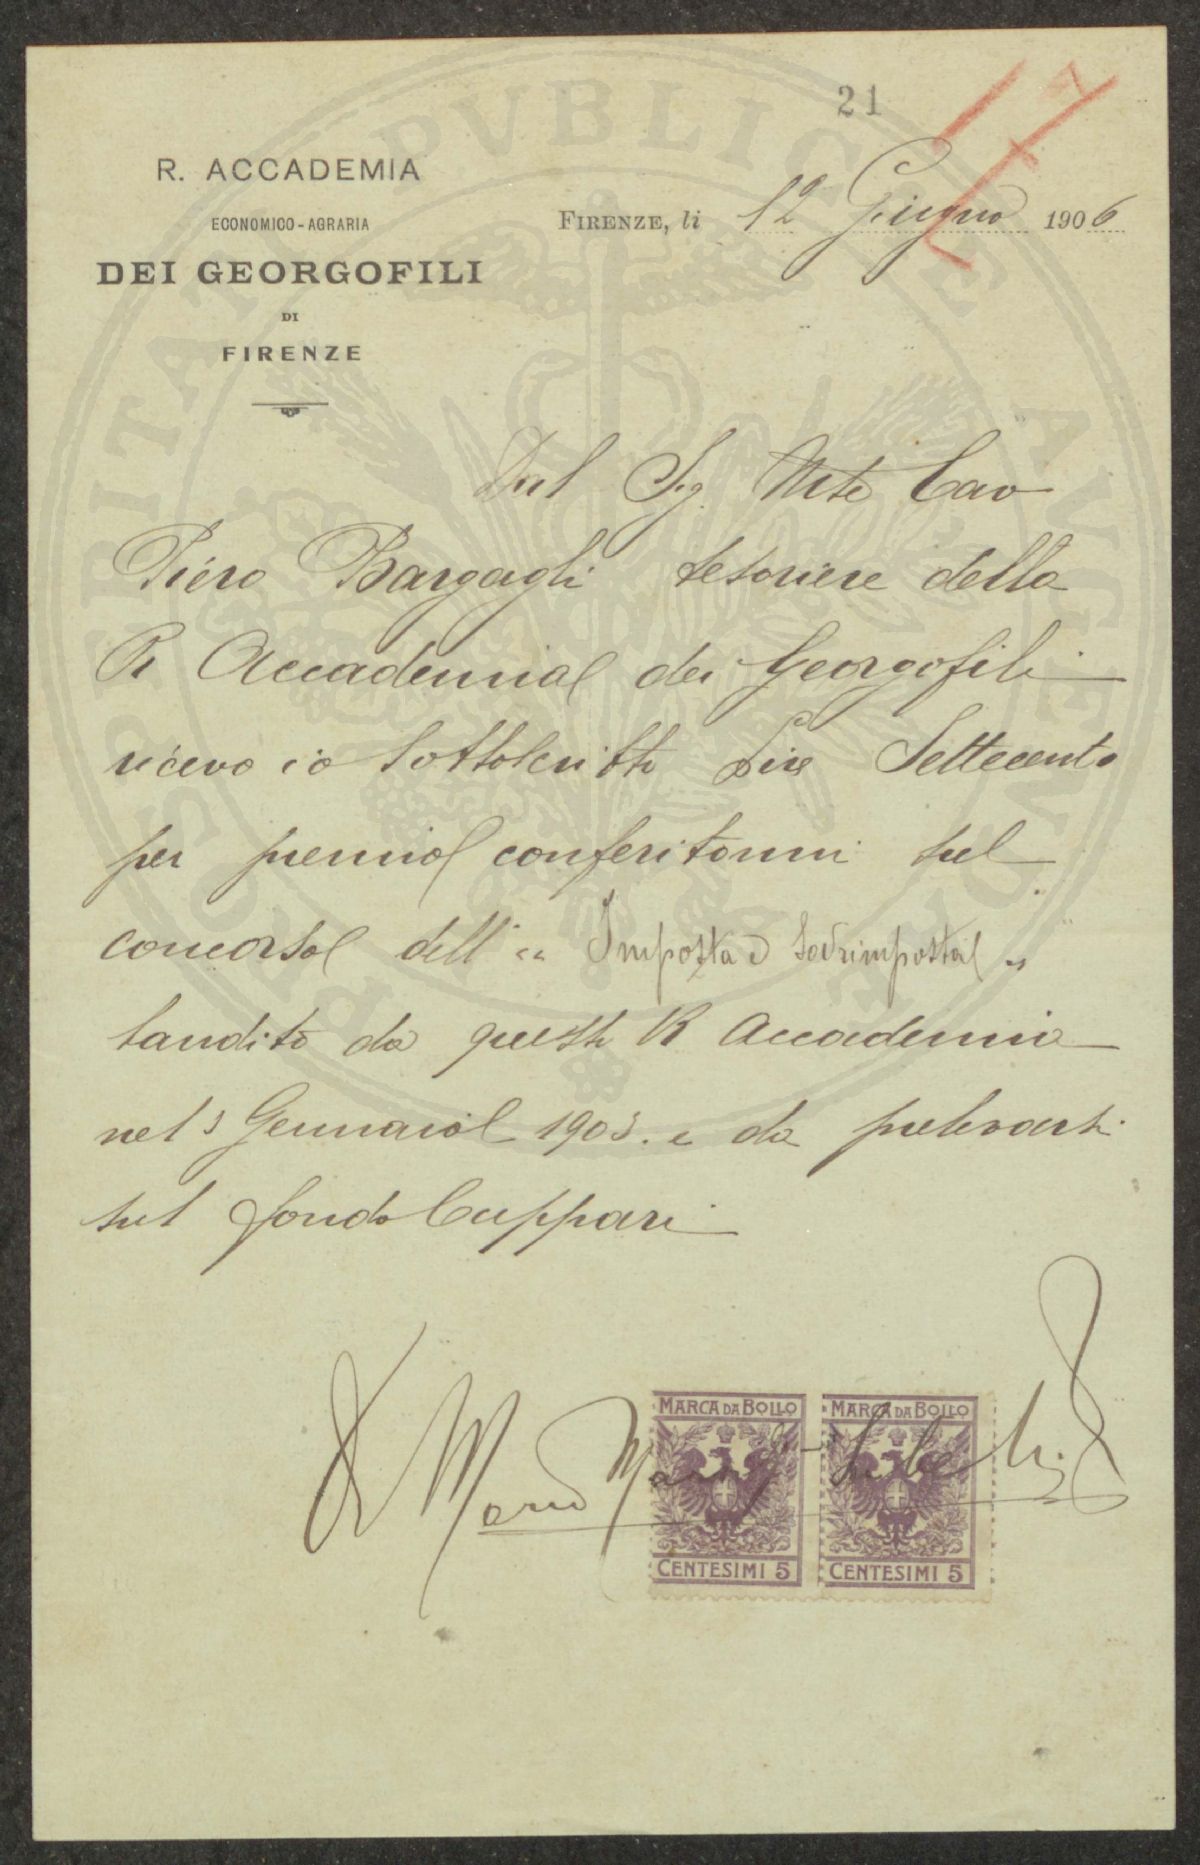 21
17
R. ACCADEMIA
ECONOMICO-AGRARIA
DEI GEORGOFILI
DI
FIRENZE
FIRENZE, li 12 Giugno 1906
PROSPERITATI PUBLICAE AUGENDAE
Dal Sig. Mse Cav
Piero Bargagli tesoriere della
R Accademia dei Georgofili
ricevo io sottoscritto Lire Settecento
per premio conferitomi sul
concorso dell' " Imposta e Sovrimposta "
bandito da questa R Accademia
nel 3 Gennaio 1903. e da prelevarsi
sul fondo Cuppari
Mario
MARCA DA BOLLO
CENTESIMI 5
MARCA DA BOLLO
CENTESIMI 5